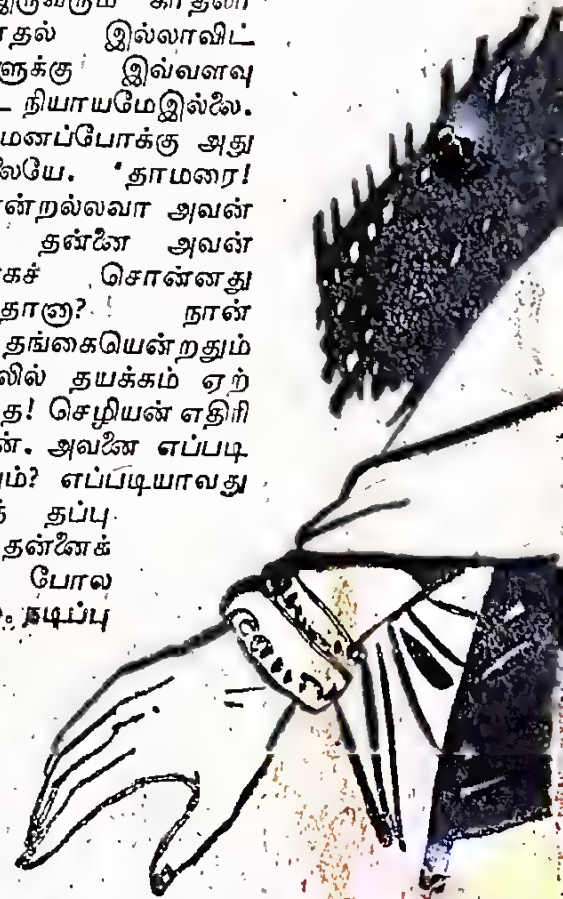 இருவரும் காதலா
தல் இல்லாவிட்
ளுக்கு இவ்வளவு
நியாயமேஇல்லை.
மனப்போக்கு அது
லையே. "தாமரை!
என்றல்லவா அவன்
தன்னை அவன்
கச் சொன்னது
தானா? நான்
தங்கையென்றதும்
லில் தயக்கம் ஏற்
த! செழியன் எதிரி
ன். அவனை எப்படி
ும்? எப்படியாவது
தப்பு
தன்னைக்
போல
நடிப்பு